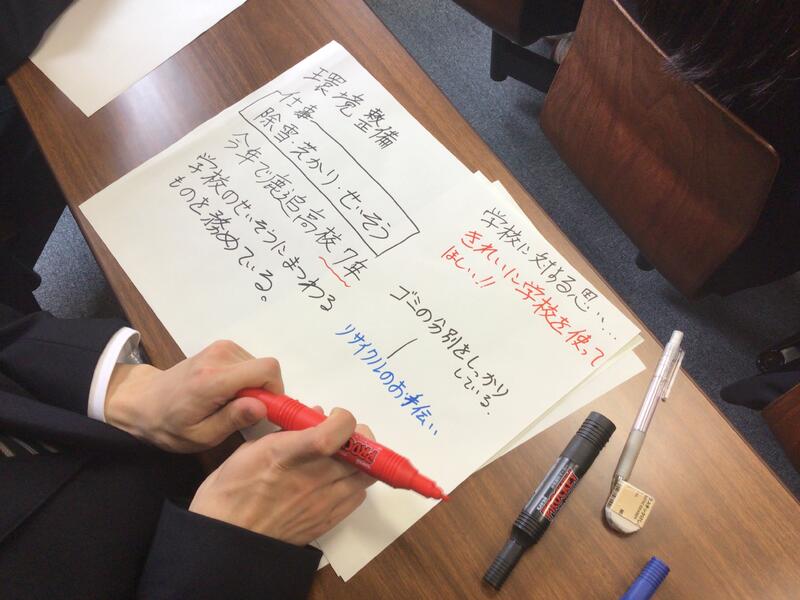 環境整備
仕事
除雪・草かり・せいそう
今年で鹿追高校7年
学校のせいそうにまつわる
ものを務めている。
学校に対する思い…
きれいに学校を使って
ほしい!!
ゴミの分別をしっかり
している。
リサイクルのお手伝い